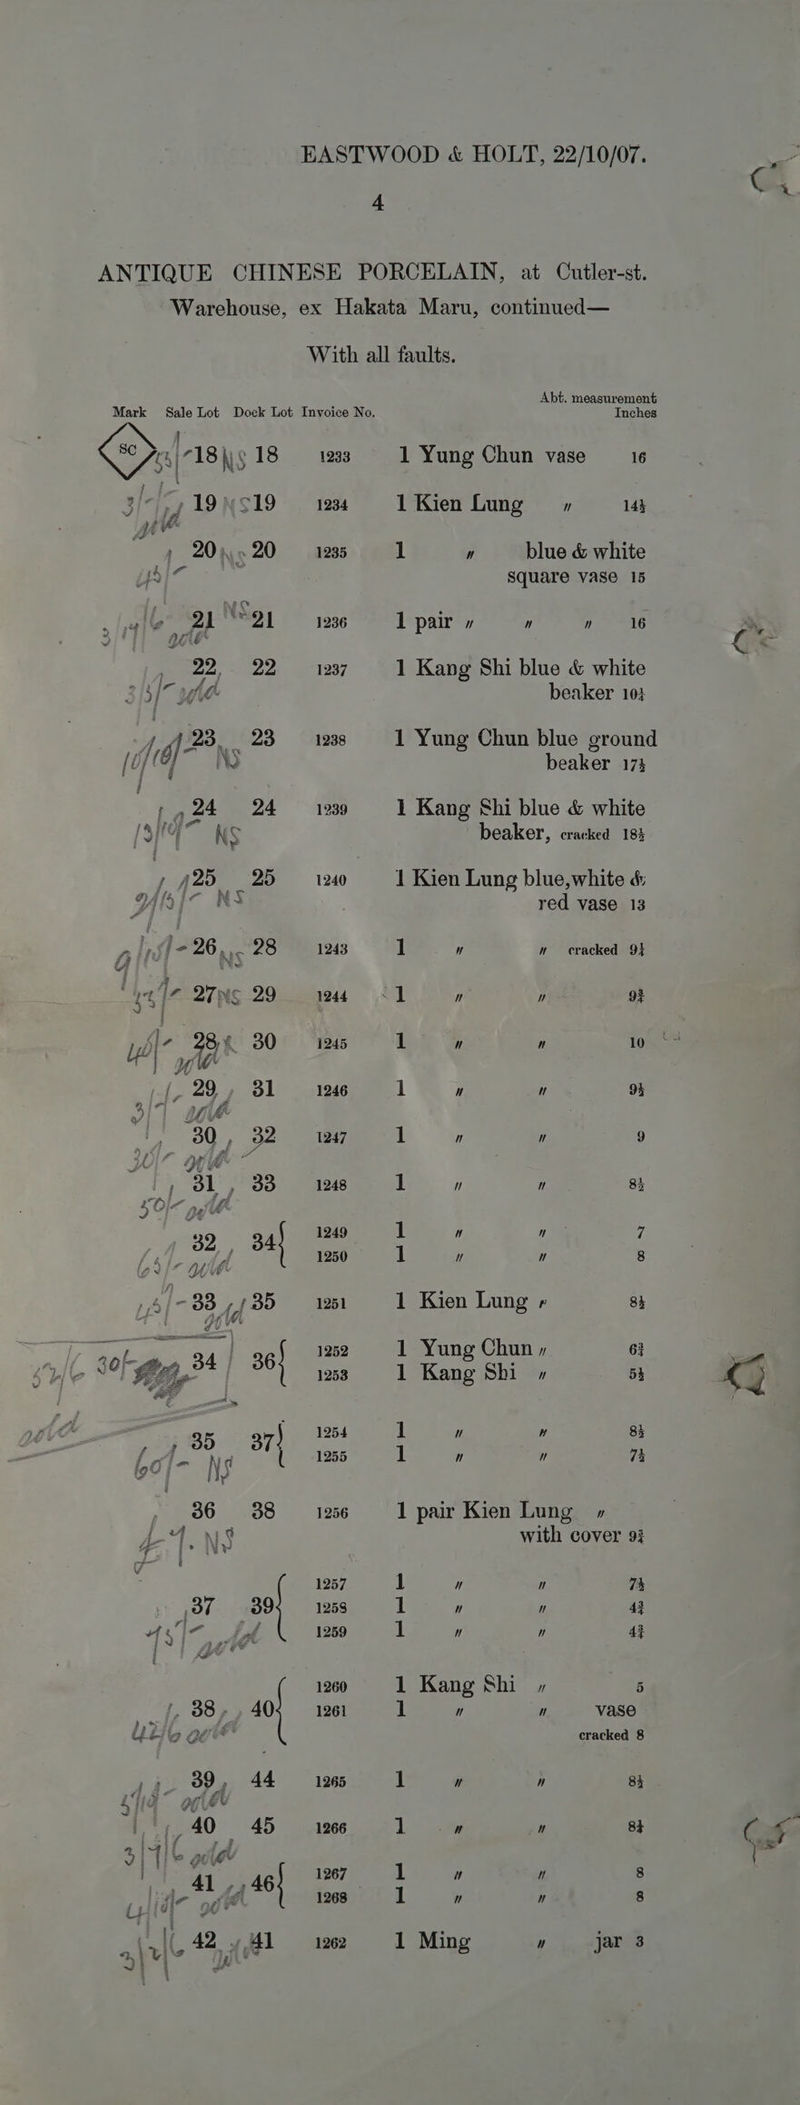 EASTWOOD & HOLT, 22/10/07.
4
ANTIQUE CHINESE PORCELAIN, at Cutler-st.
Warehouse, ex Hakata Maru, continued—
With all faults.
Abt. measurement
Mark Sale Lot Dock Lot Invoice No. Inches
SC 18 NS 18 1233 1 Yung Chun vase 16
19 NS 19 1234 1 Kien Lung " 14½
gild
20 NS 20 1235 1 " blue & white
square vase 15
21 NS 21 1236 1 pair " " " 16
gild
22 22 1237 1 Kang Shi blue & white
gild beaker 10½
23 23 1238 1 Yung Chun blue ground
NS beaker 17½
24 24 1239 1 Kang Shi blue & white
NS beaker, cracked 18½
25 25 1240 1 Kien Lung blue,white &
NS red vase 13
26 NS 28 1243 1 " " cracked 9½
27 NS 29 1244 1 " " 9¾
28 30 1245 1 " " 10
gild
29 31 1246 1 " " 9½
gild
30 32 1247 1 " " 9
gild
31 33 1248 1 " " 8½
50/- gild
32 34 1249 1 " " 7
gild 1250 1 " " 8
33 35 1251 1 Kien Lung " 8½
gild
34 36 1252 1 Yung Chun " 6¾
1253 1 Kang Shi " 5½
gild
35 37 1254 1 " " 8½
60/- NS 1255 1 " " 7½
36 38 1256 1 pair Kien Lung "
NS with cover 9¾
1257 1 " " 7½
37 39 1258 1 " " 4¾
gild 1259 1 " " 4¾
1260 1 Kang Shi " 5
38 40 1261 1 " " vase
gild cracked 8
39 44 1265 1 " " 8½
gild
40 45 1266 1 " " 8½
gild
41 46 1267 1 " " 8
gild 1268 1 " " 8
42 41 1262 1 Ming " jar 3